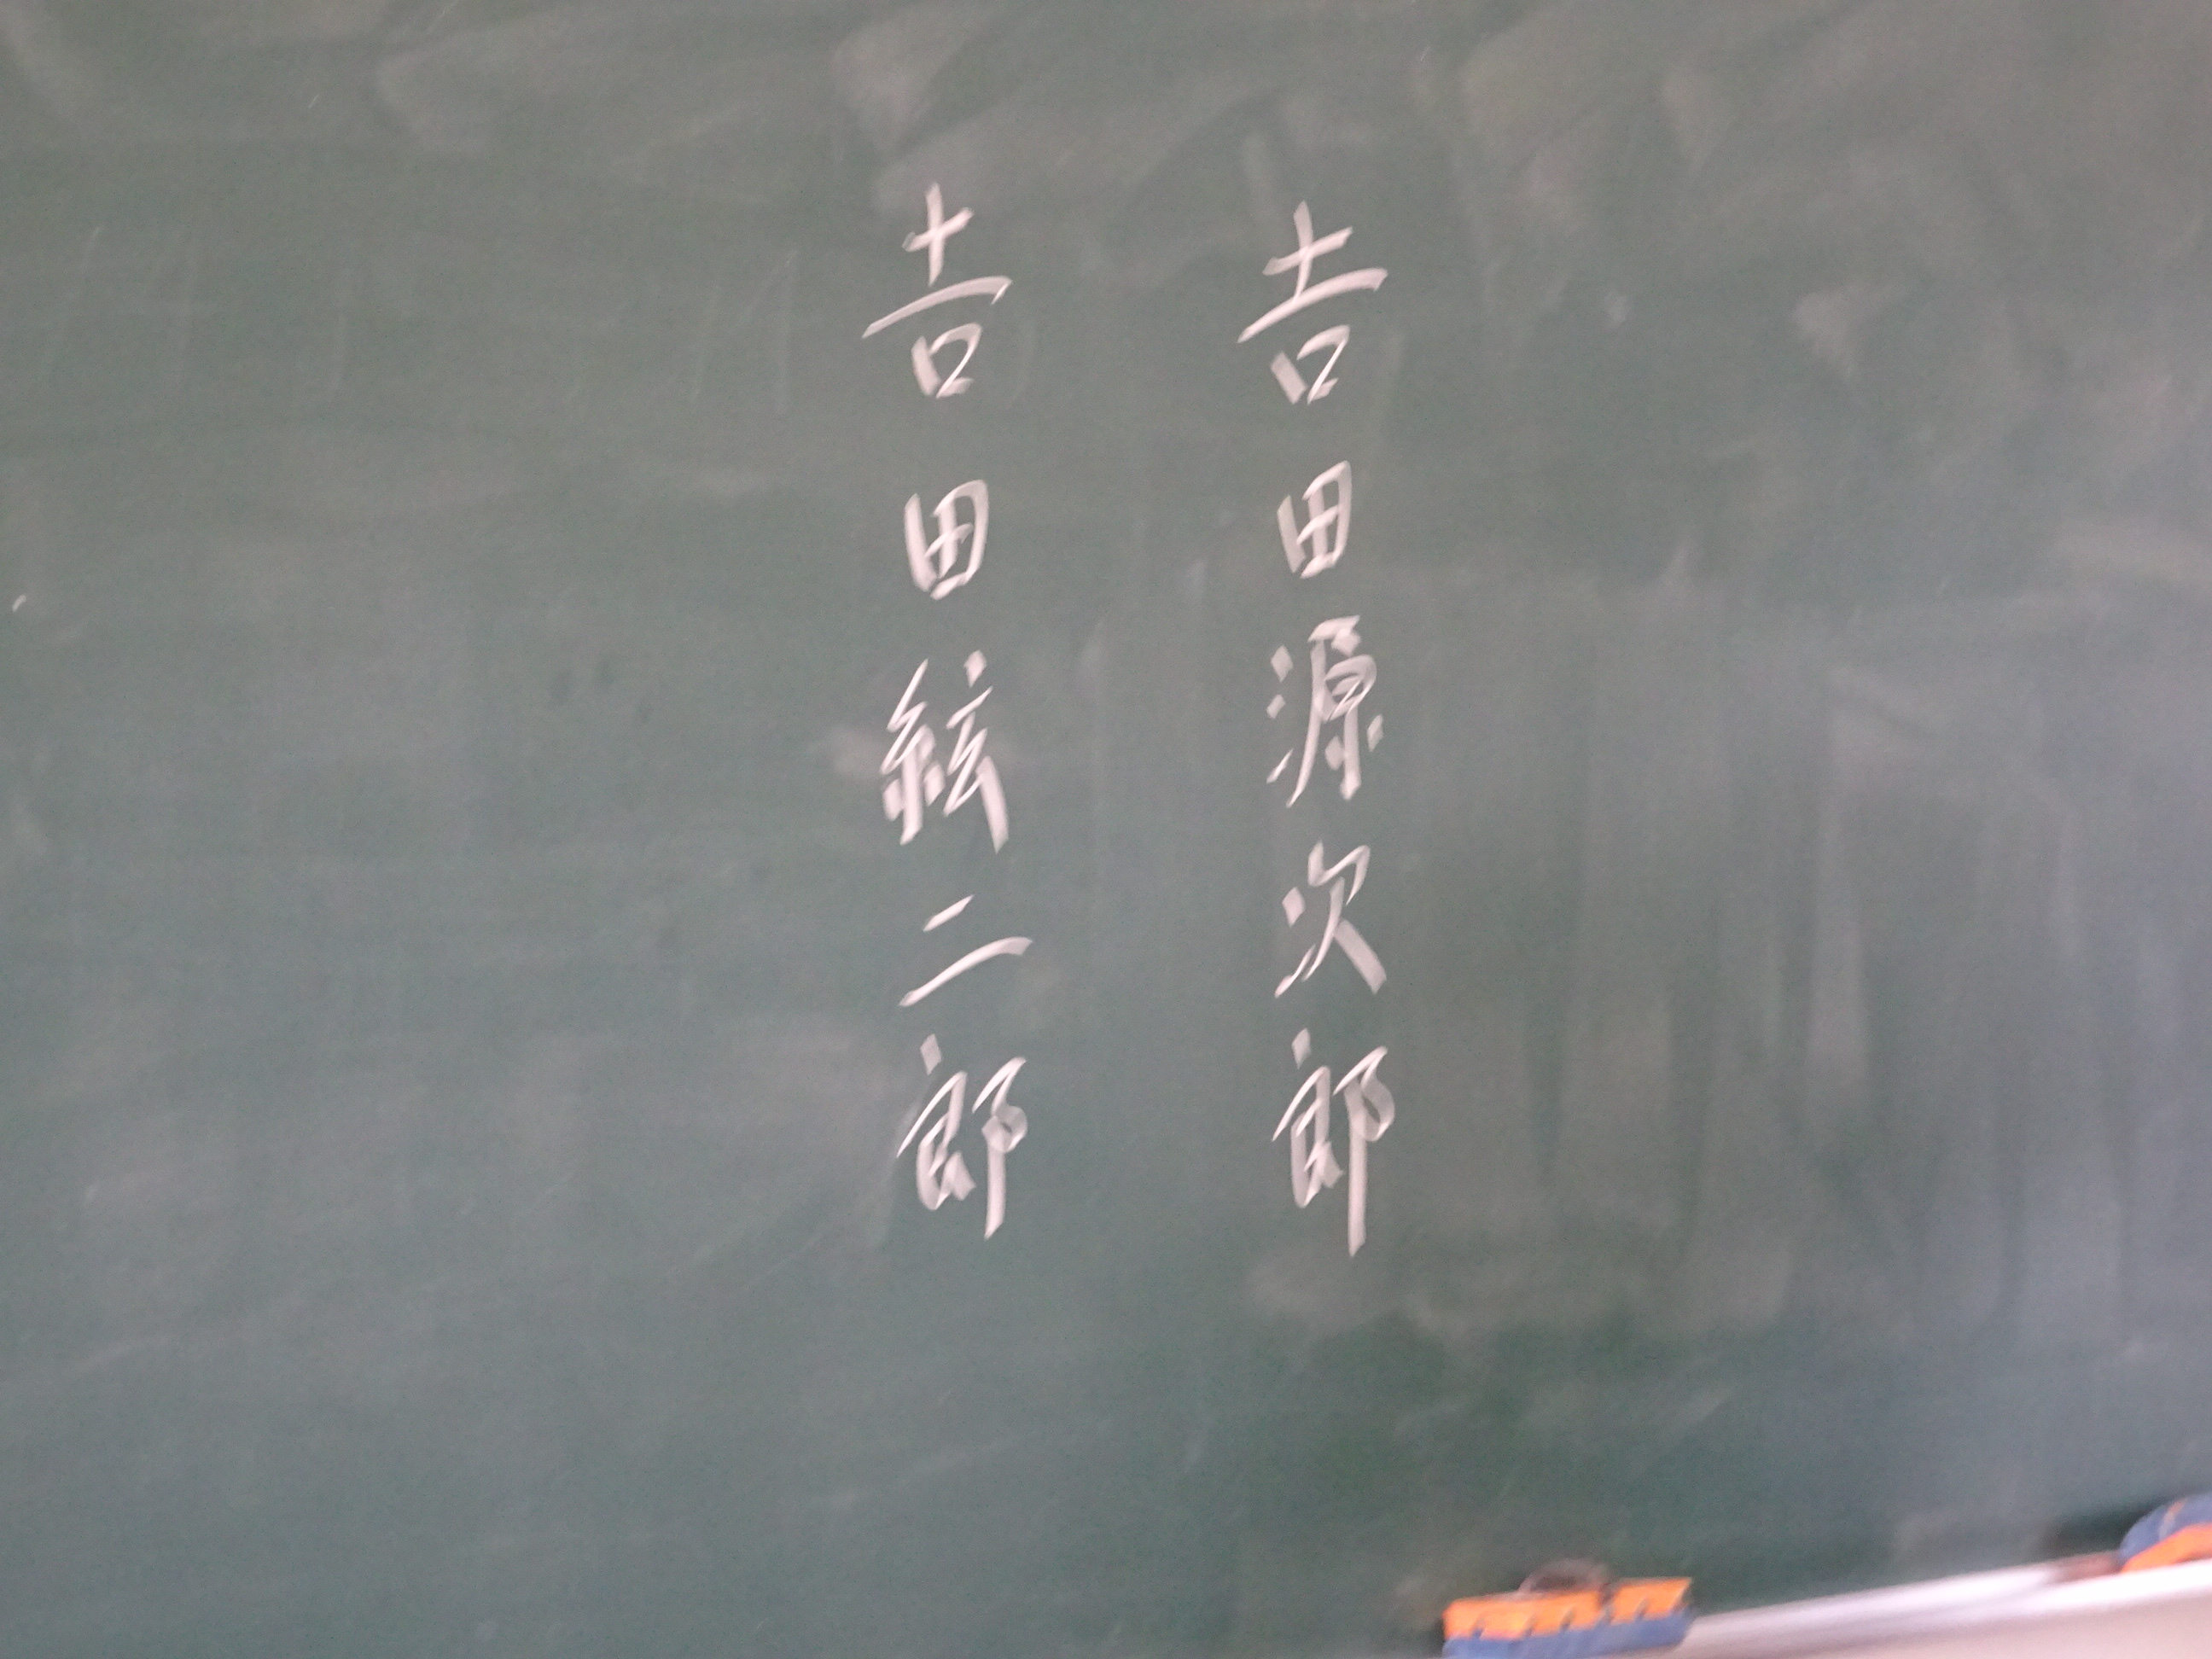 吉田源次郎
吉田絃二郎